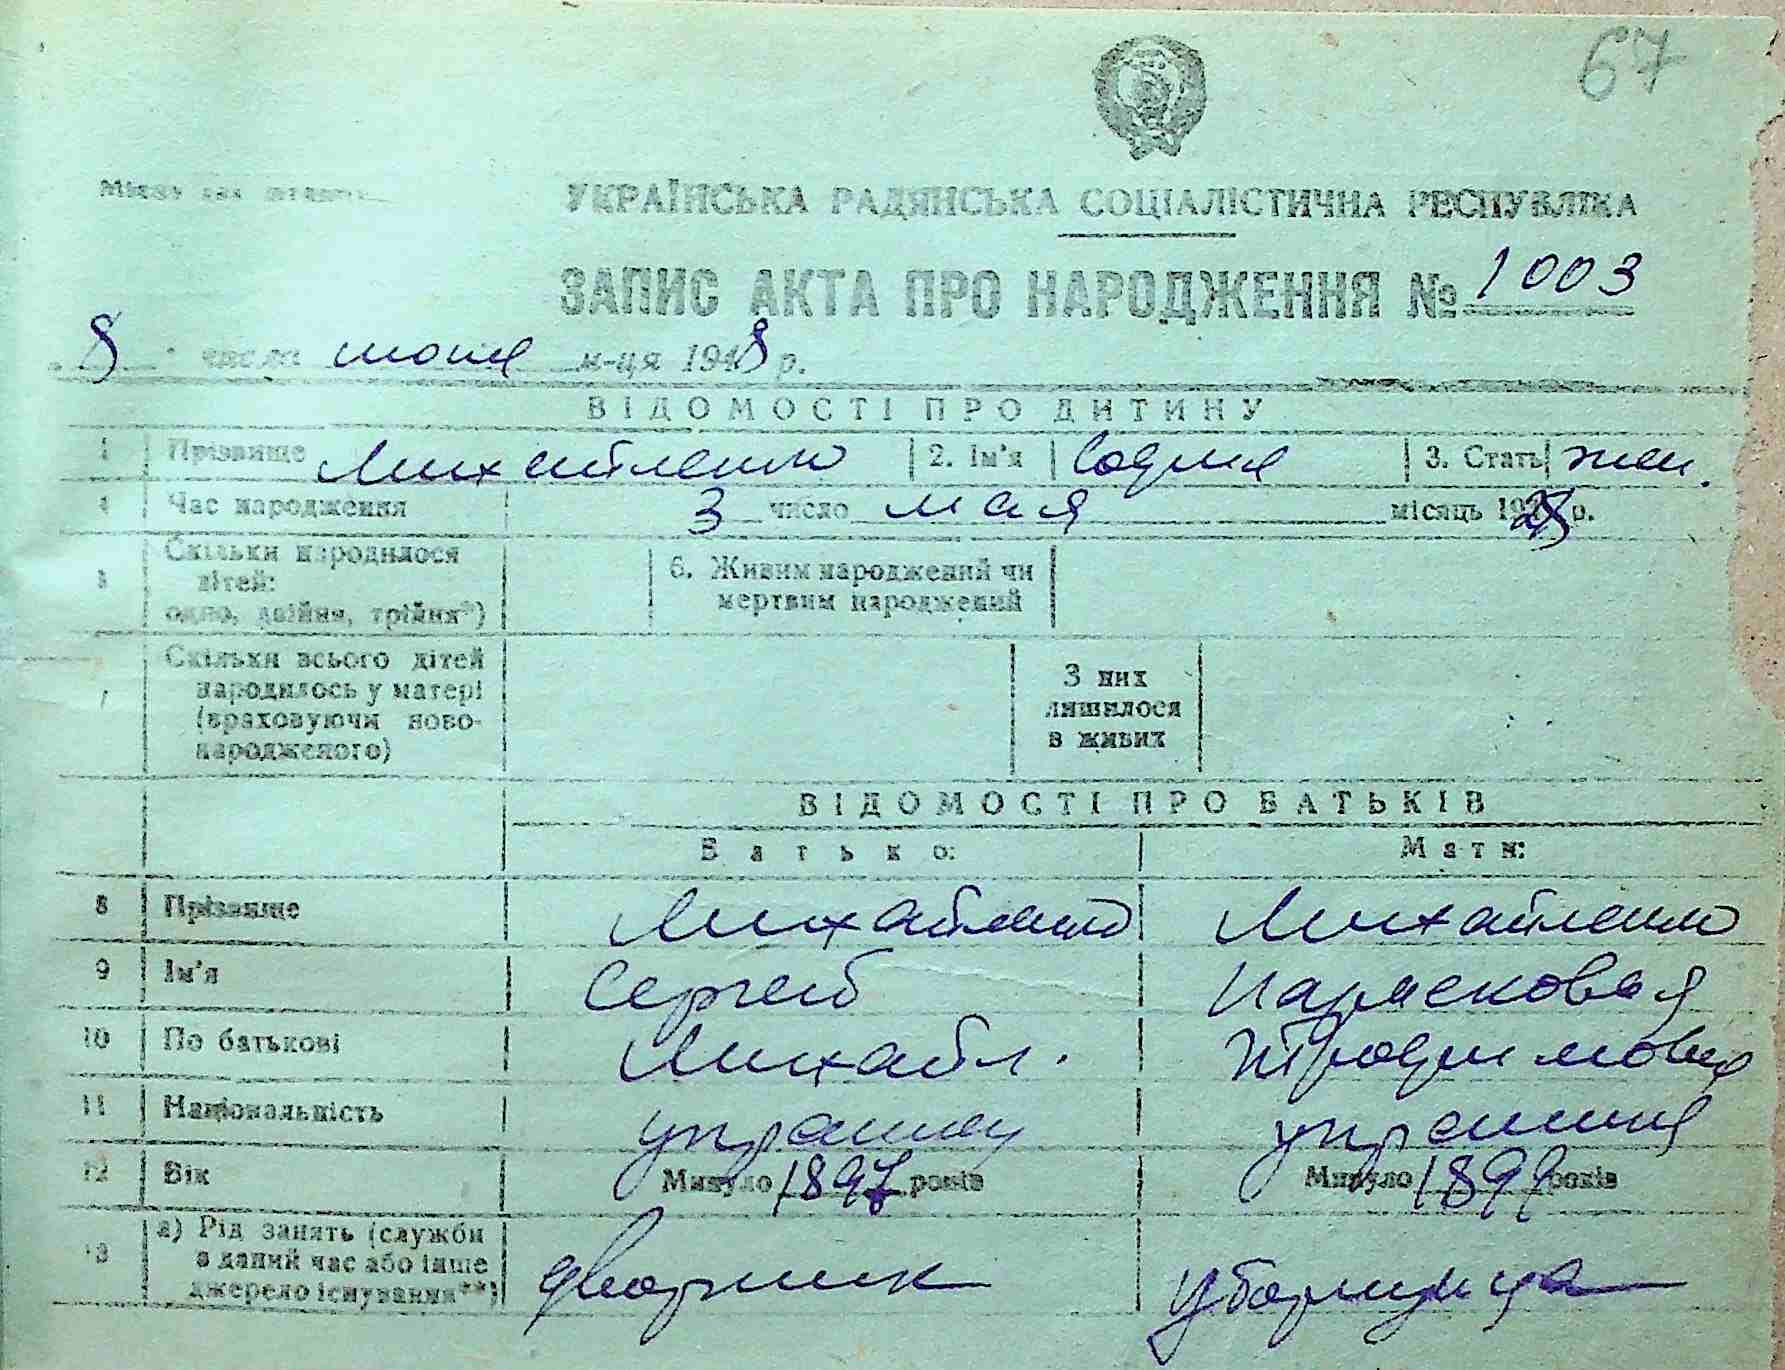 67
Місце для штампа
УКРАЇНСЬКА РАДЯНСЬКА СОЦІАЛІСТИЧНА РЕСПУБЛІКА
ЗАПИС АКТА ПРО НАРОДЖЕННЯ № 1003
8 числа июня м-ця 1948 р.
ВІДОМОСТІ ПРО ДИТИНУ
1 Прізвище Михайленко 2. Ім'я София 3. Стать жен.
4 Час народження 3 число мая місяць 19 р.
5 Скільки народилося дітей: одно, двійня, трійня*) 6. Живим народжений чи мертвим народжений
7 Скільки всього дітей народилось у матері (враховуючи новонародженого) З них лишилося в живих
ВІДОМОСТІ ПРО БАТЬКІВ
Батько: Мати:
8 Прізвище Михайленко Михайленко
9 Ім'я Сергей Парасковья
10 По батькові Михайл. Трофимовна
11 Національність украинец украинка
12 Вік Минуло 1897 років Минуло 1899 років
13 а) Рід занять (служби в даний час або інше джерело існування**) дворник уборщица